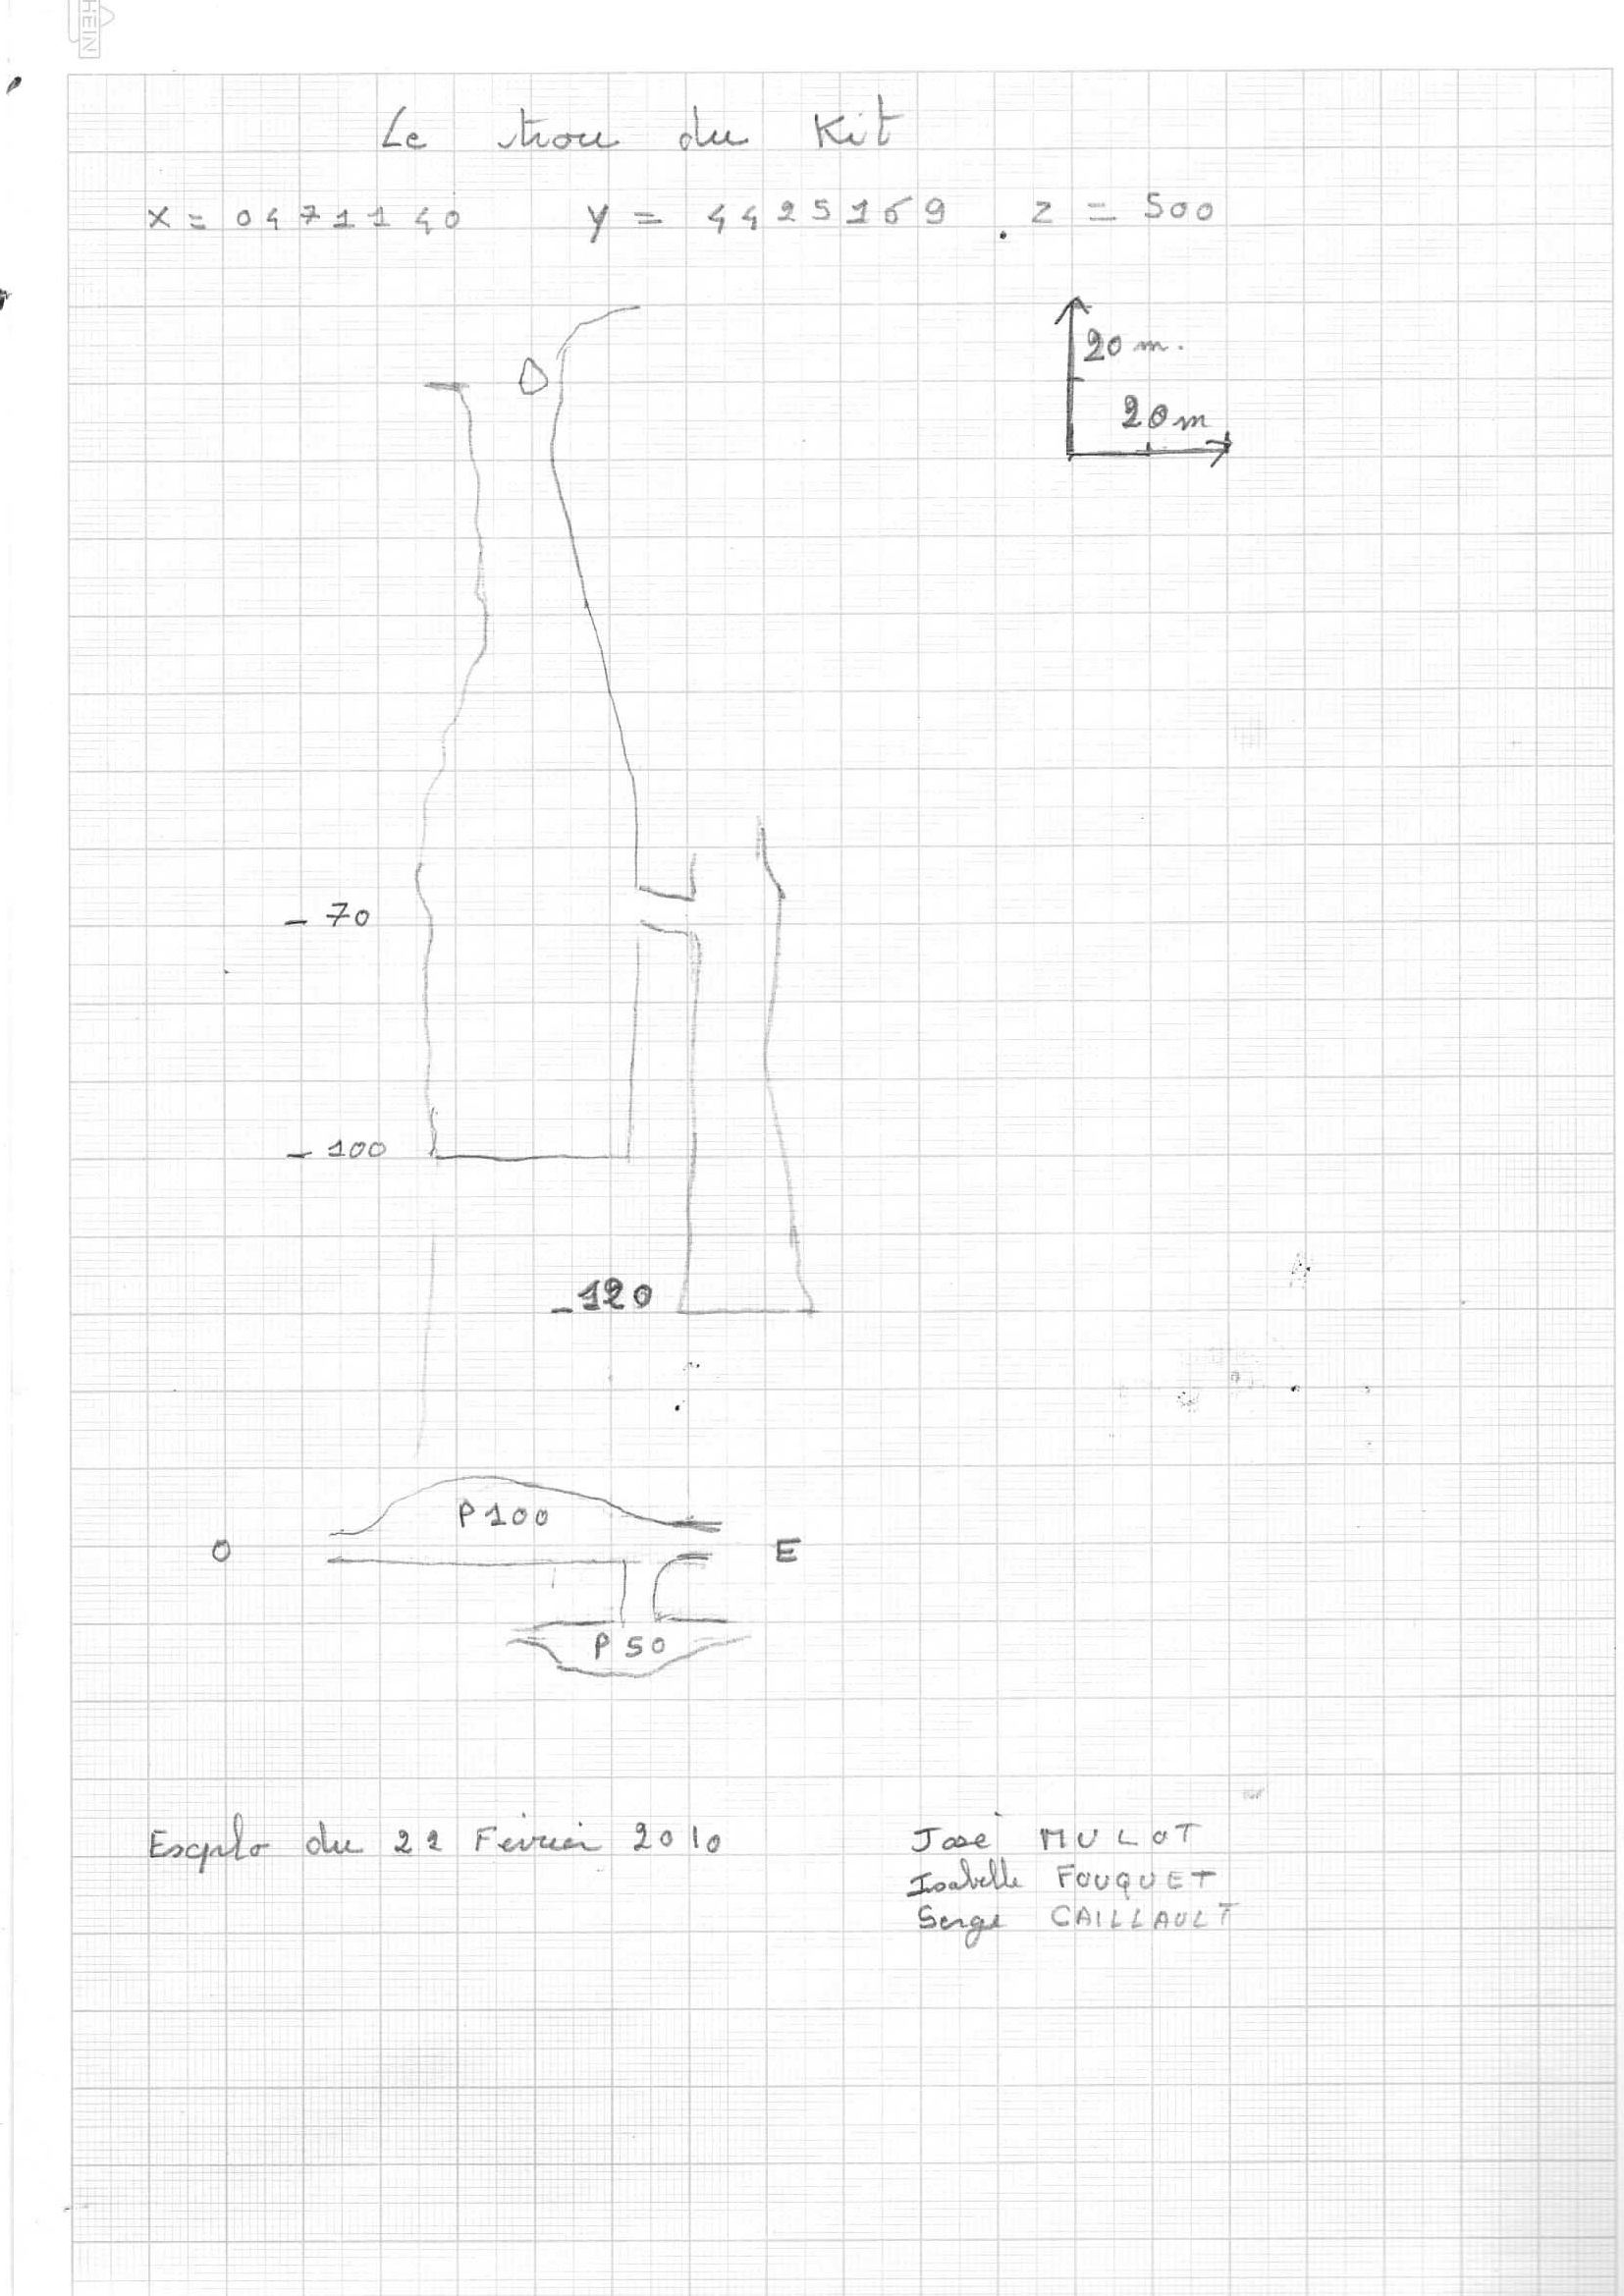 HEIN
Le trou du Kit
X = 0471140 Y = 4425169 Z = 500
0
20 m.
20 m
- 70
- 100
- 120
P100
O E
P50
Explo du 22 Février 2010
José MULOT
Isabelle FOUQUET
Serge CAILLAULT